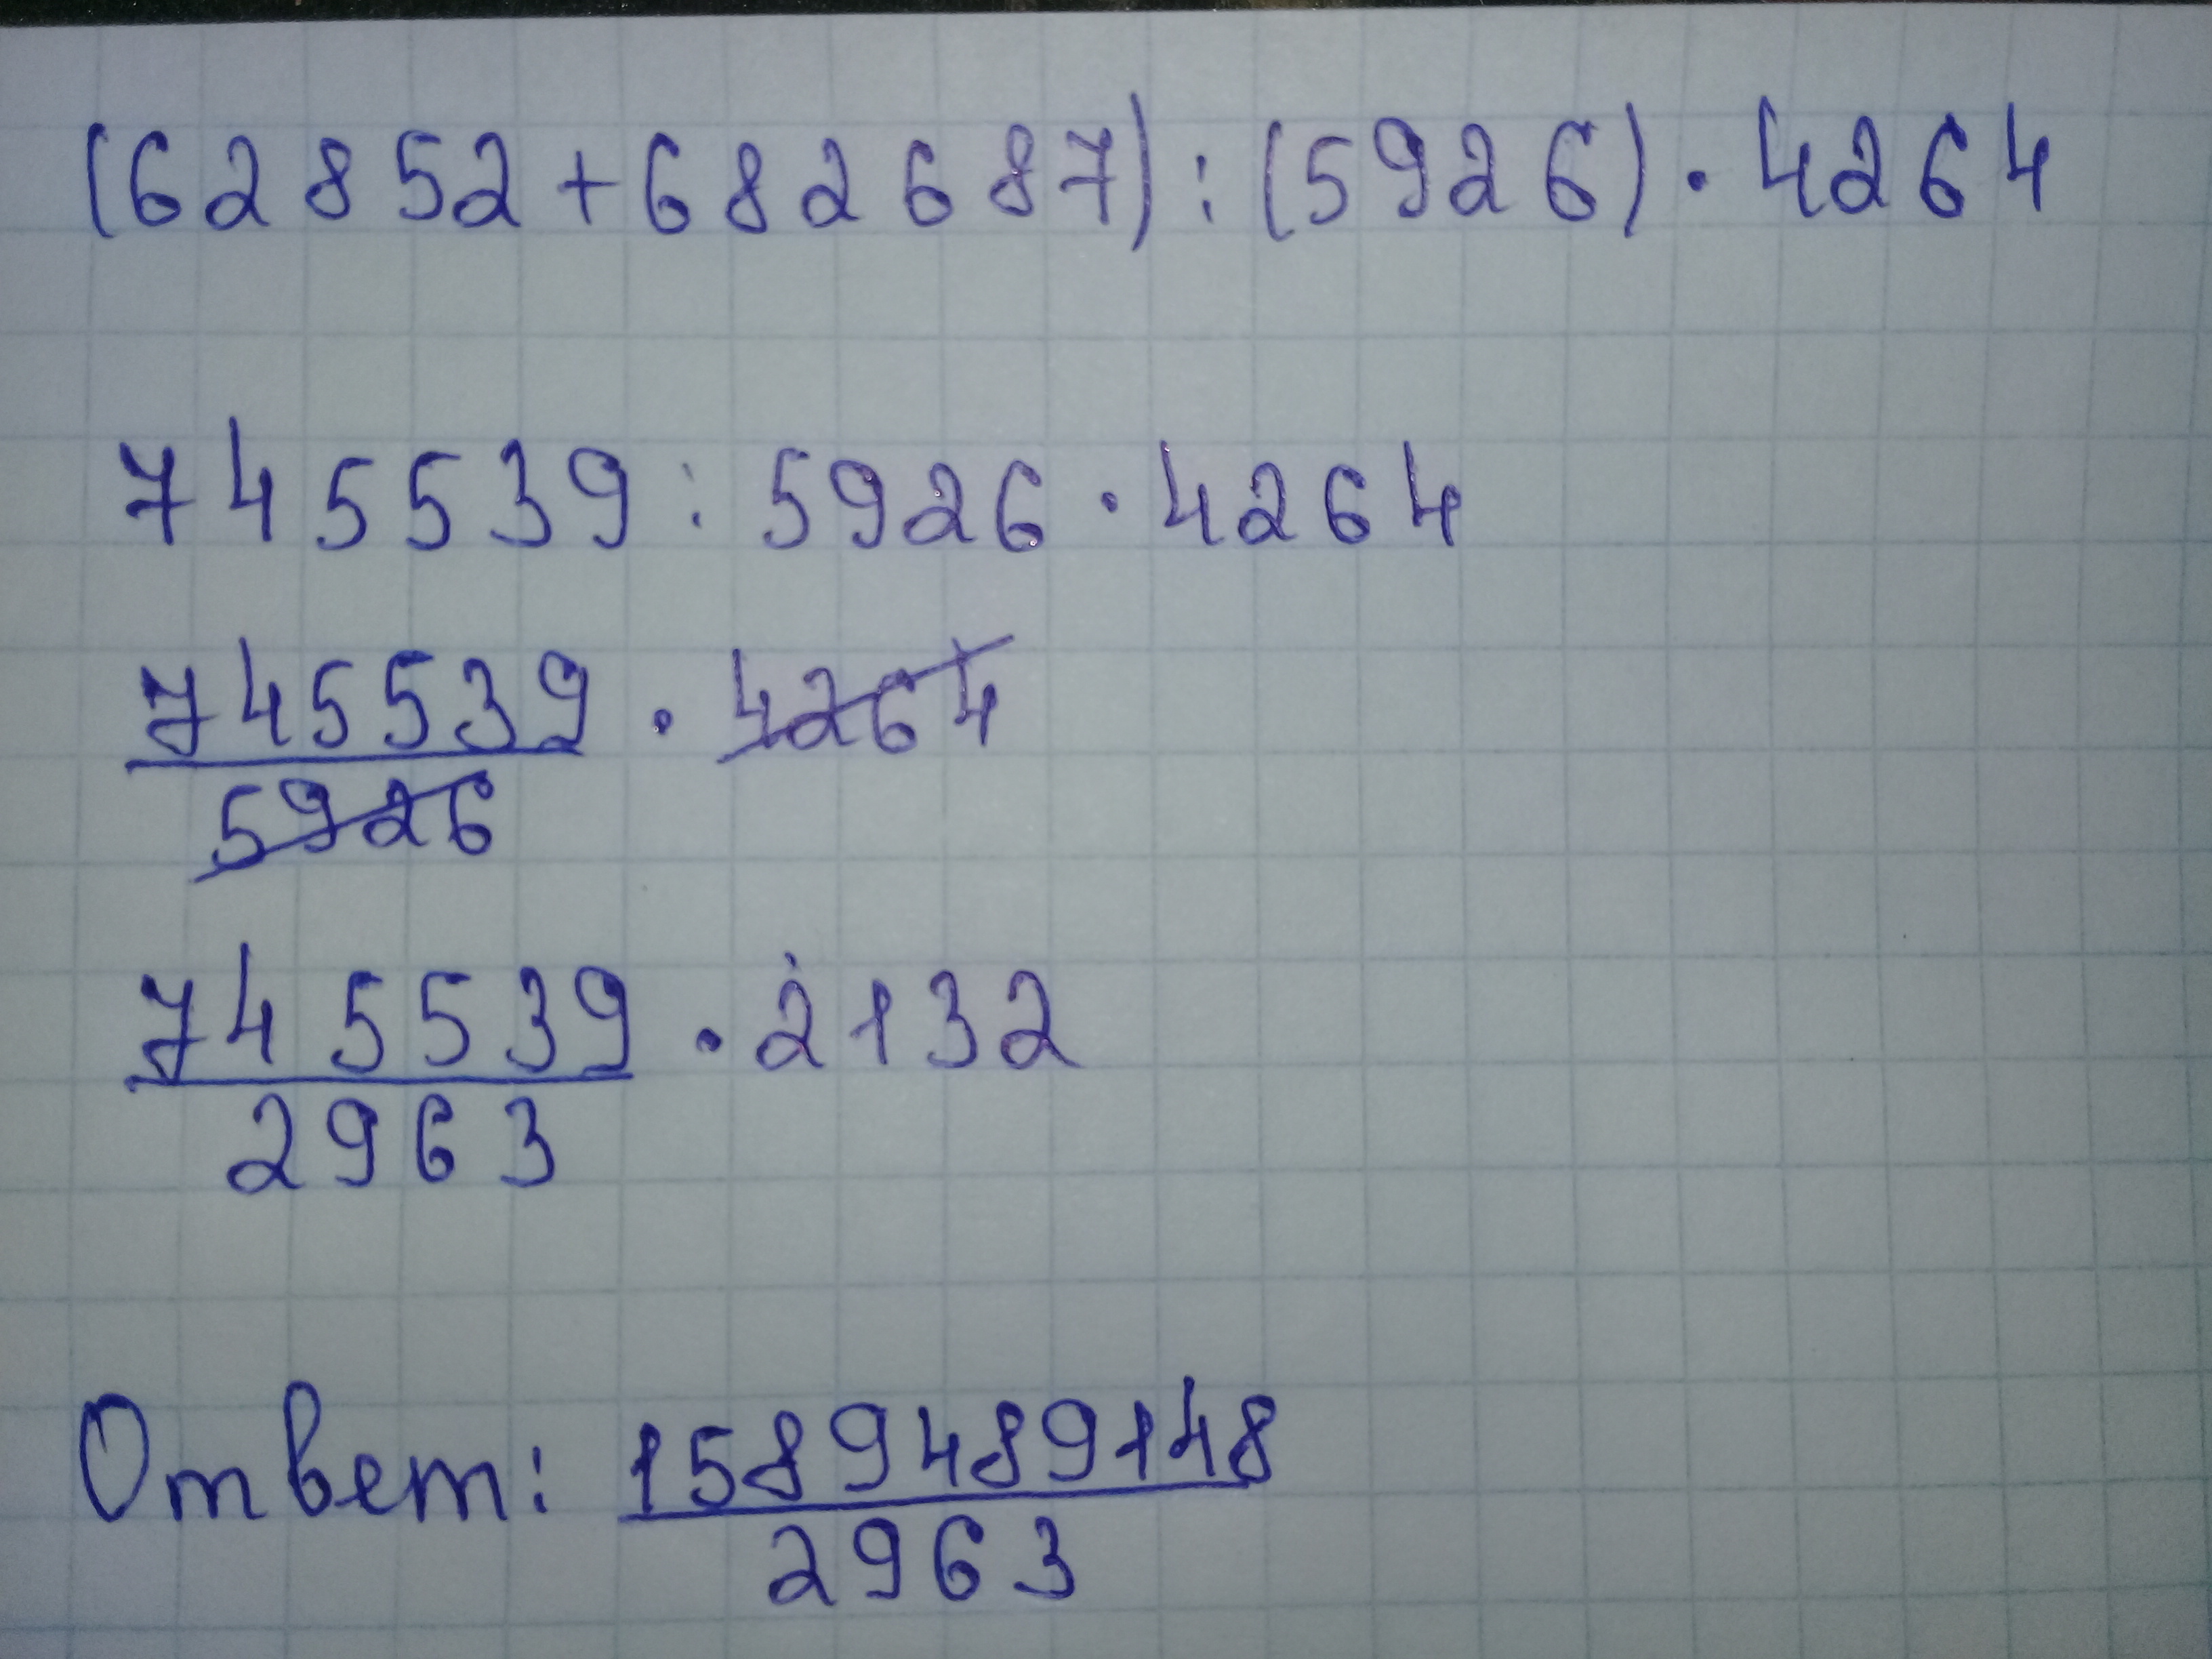 (62852+682687):(5926)·4264
745539:5926·4264
745539 · 4264
5926
745539 · 2132
2963
Ответ: 1589489148
2963